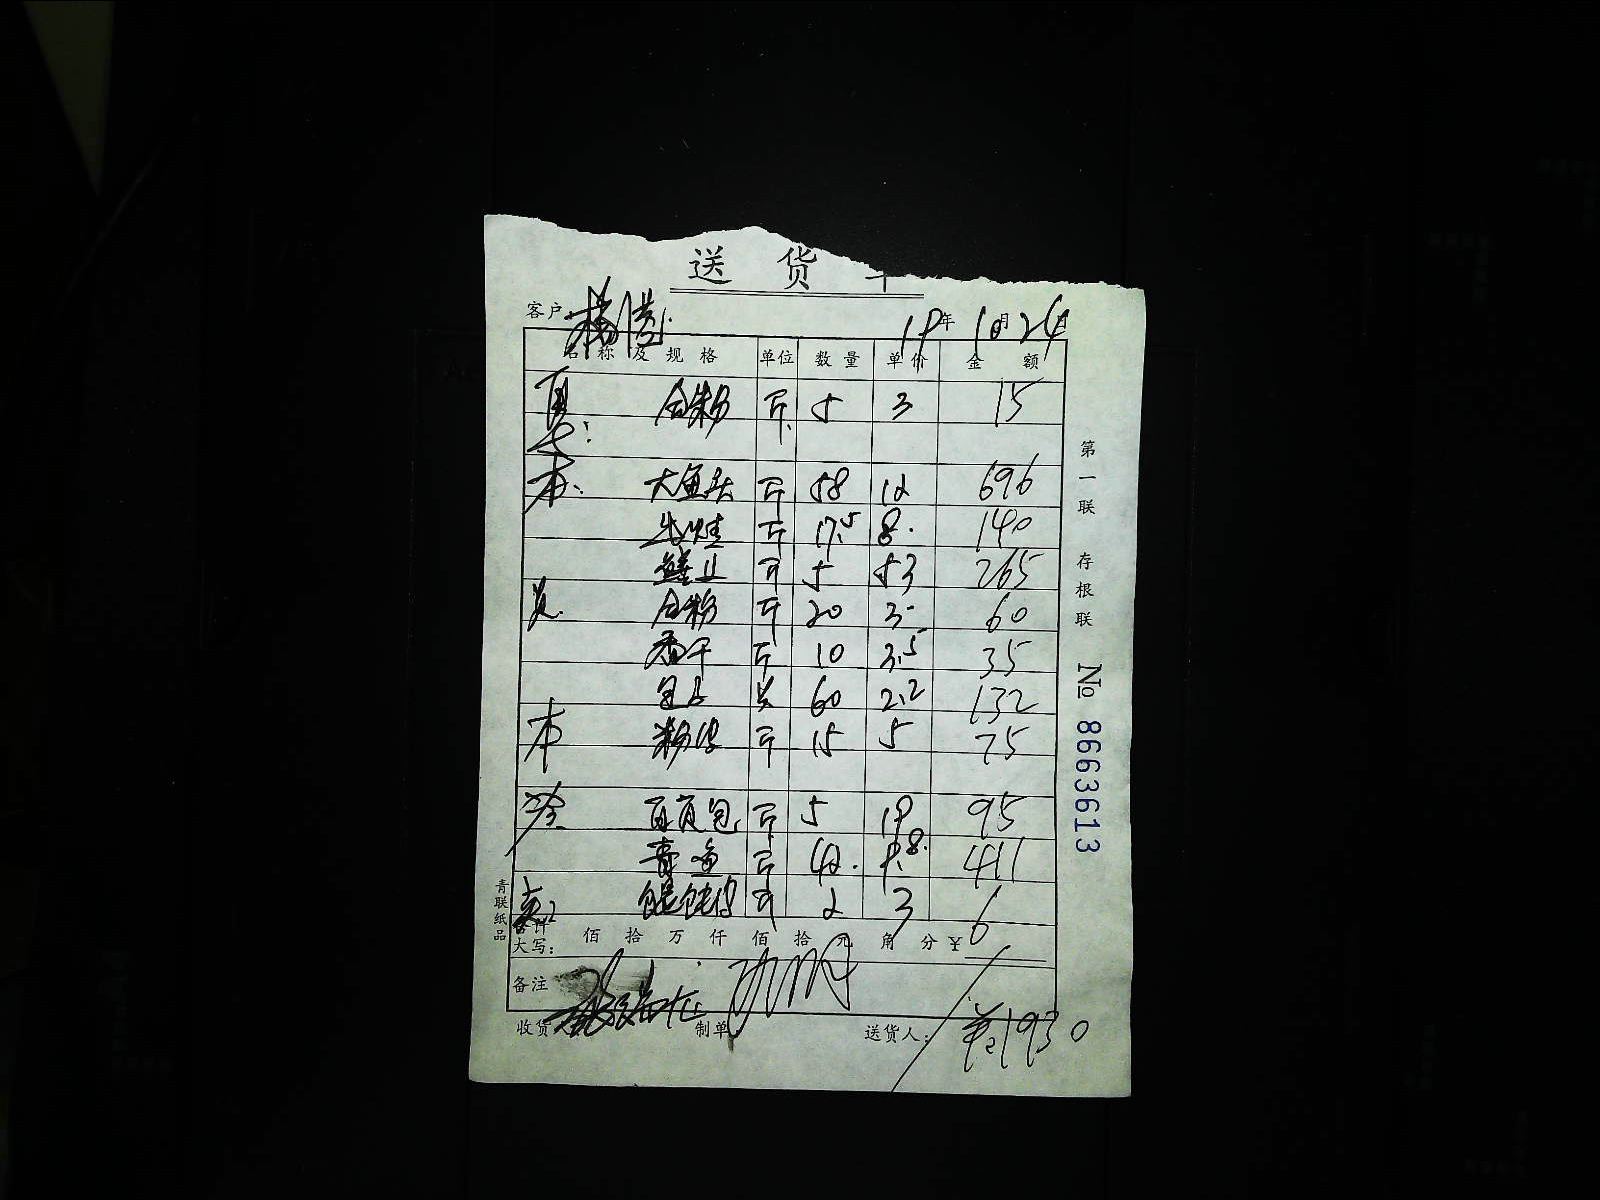 送 货
客户 19年 10月 24日
名称及规格 单位 数量 单价 金额
白粉 斤 5 3 15
本: 大鱼头 斤 58 12 696
牛蛙 斤 17.5 8. 140
斤 5 53 265
白粉 斤 20 3 60
香干 斤 10 3.5 35
60 2.2 132
本 粉皮 斤 15 5 75
百页包 斤 5 19 95
青鱼 斤 42. 9.8 411
馄饨皮 斤 2 3 6
合计
大写: 佰 拾 万 仟 佰 拾 元 角 分 ¥
备注
收货 制单 送货人: 1930
第一联 存根联
№ 8663613
青联纸品